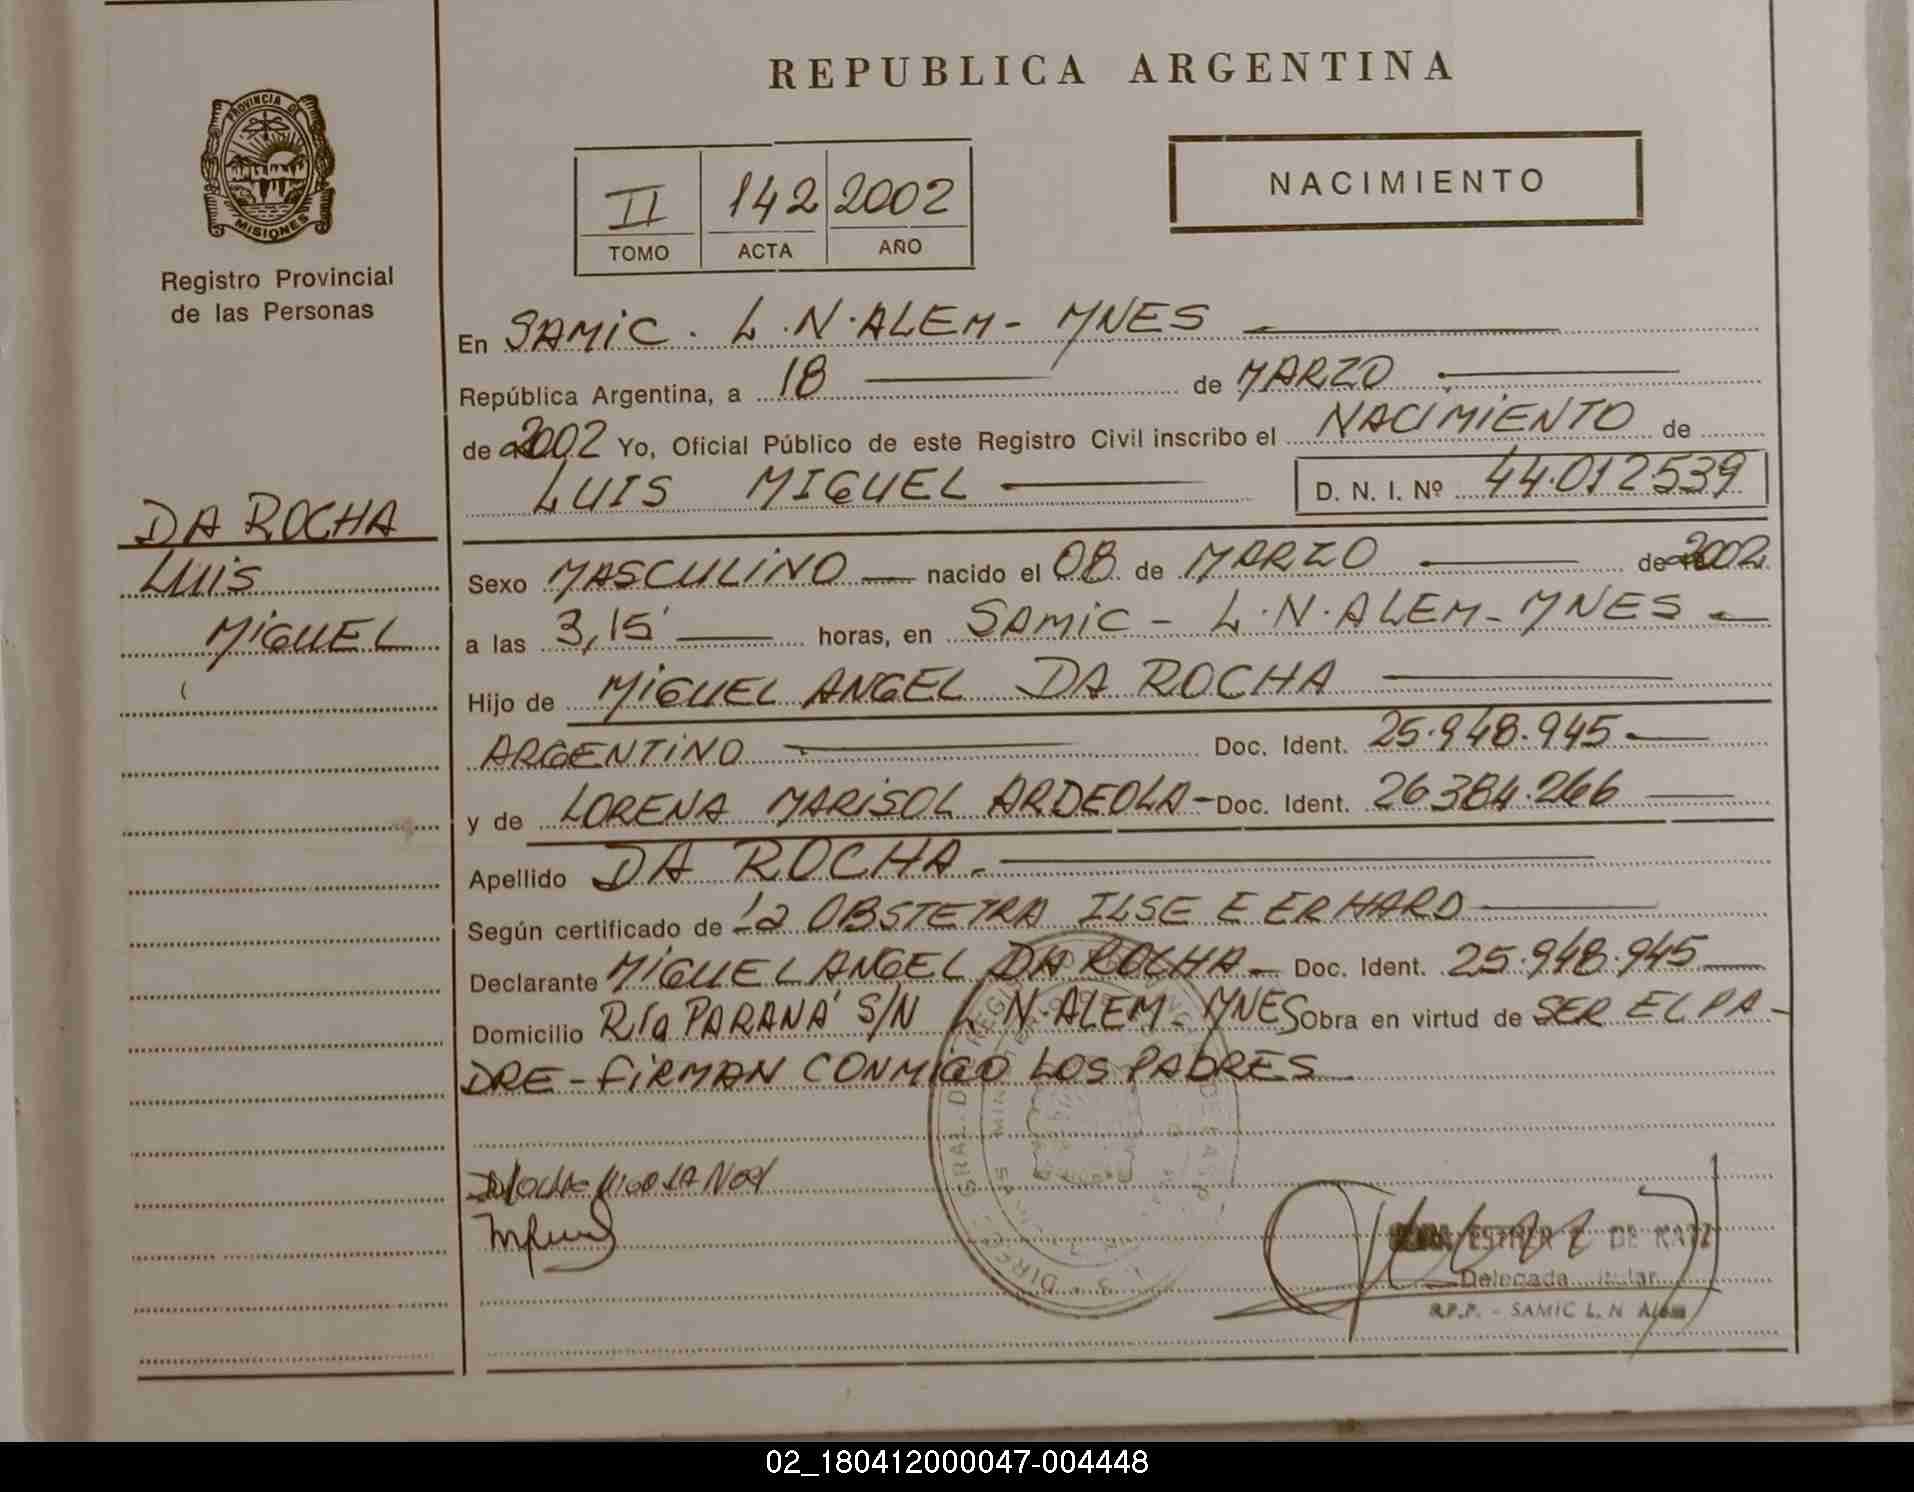 REPUBLICA ARGENTINA
PROVINCIA DE
MISIONES
Registro Provincial
de las Personas
II 142 2002
TOMO ACTA AÑO
NACIMIENTO
En SAMIC. L.N.ALEM- MNES
República Argentina, a 18 de MARZO
de 2002 Yo, Oficial Público de este Registro Civil inscribo el NACIMIENTO de
LUIS MIGUEL D. N. I. Nº 44.012539
DA ROCHA
LUIS
MIGUEL
Sexo MASCULINO nacido el 08 de MARZO de 2002
a las 3,15' horas, en SAMIC - L.N.ALEM- MNES
Hijo de MIGUEL ANGEL DA ROCHA
ARGENTINO Doc. Ident. 25.948.945
y de LORENA MARISOL ARDEOLA- Doc. Ident. 26384.266
Apellido DA ROCHA.
Según certificado de la OBSTETRA ILSE E ERHARD
Declarante MIGUEL ANGEL DA ROCHA Doc. Ident. 25.948.945
Domicilio Rio PARANÁ S/N L.N.ALEM- MNES Obra en virtud de SER EL PA-
DRE-FIRMAN CONMIGO LOS PADRES
ESTHER DE
Delegada Titular
R.P.P. - SAMIC L. N Alem
02_180412000047-004448